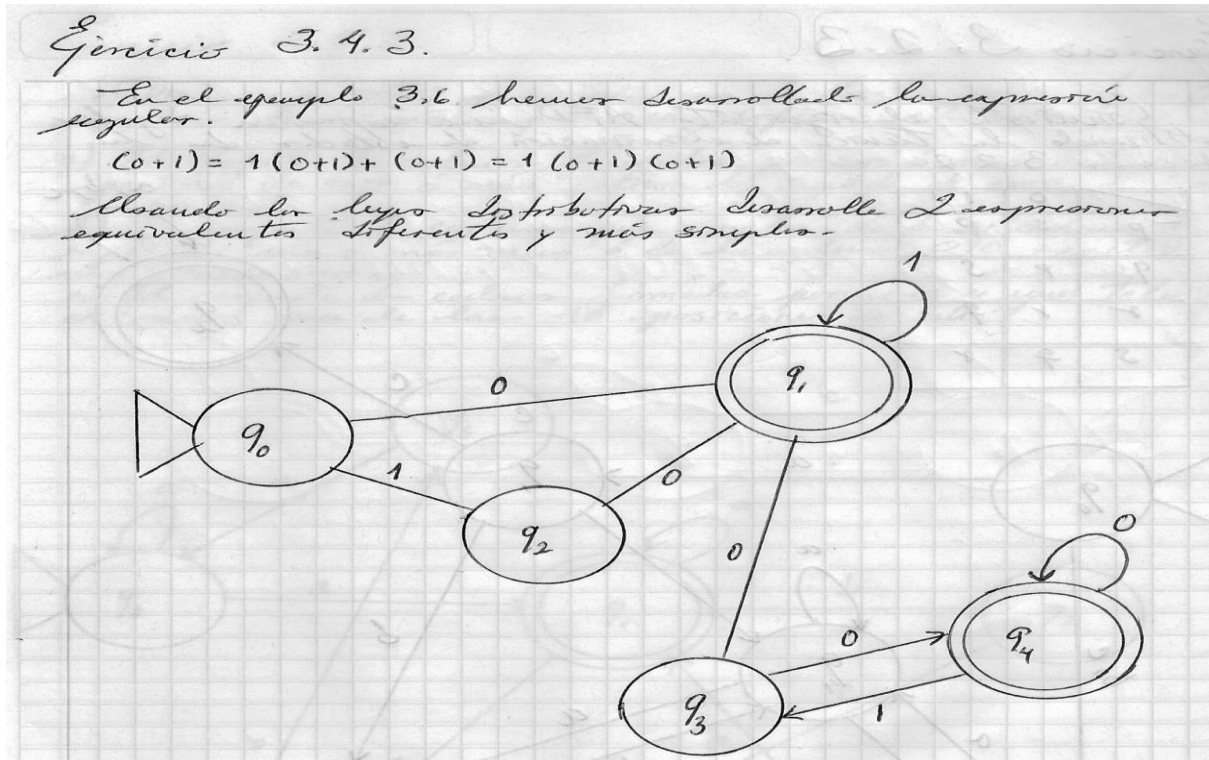 Ejercicio 3.4.3.
En el ejemplo 3.6 hemos desarrollado la expresión
regular.
(0+1) = 1(0+1) + (0+1) = 1 (0+1) (0+1)
Usando las leyes distributivas desarrolle 2 expresiones
equivalentes diferentes y más simples.
1
0
q1
q0
1
0
q2
0
0
0
q4
q3
1